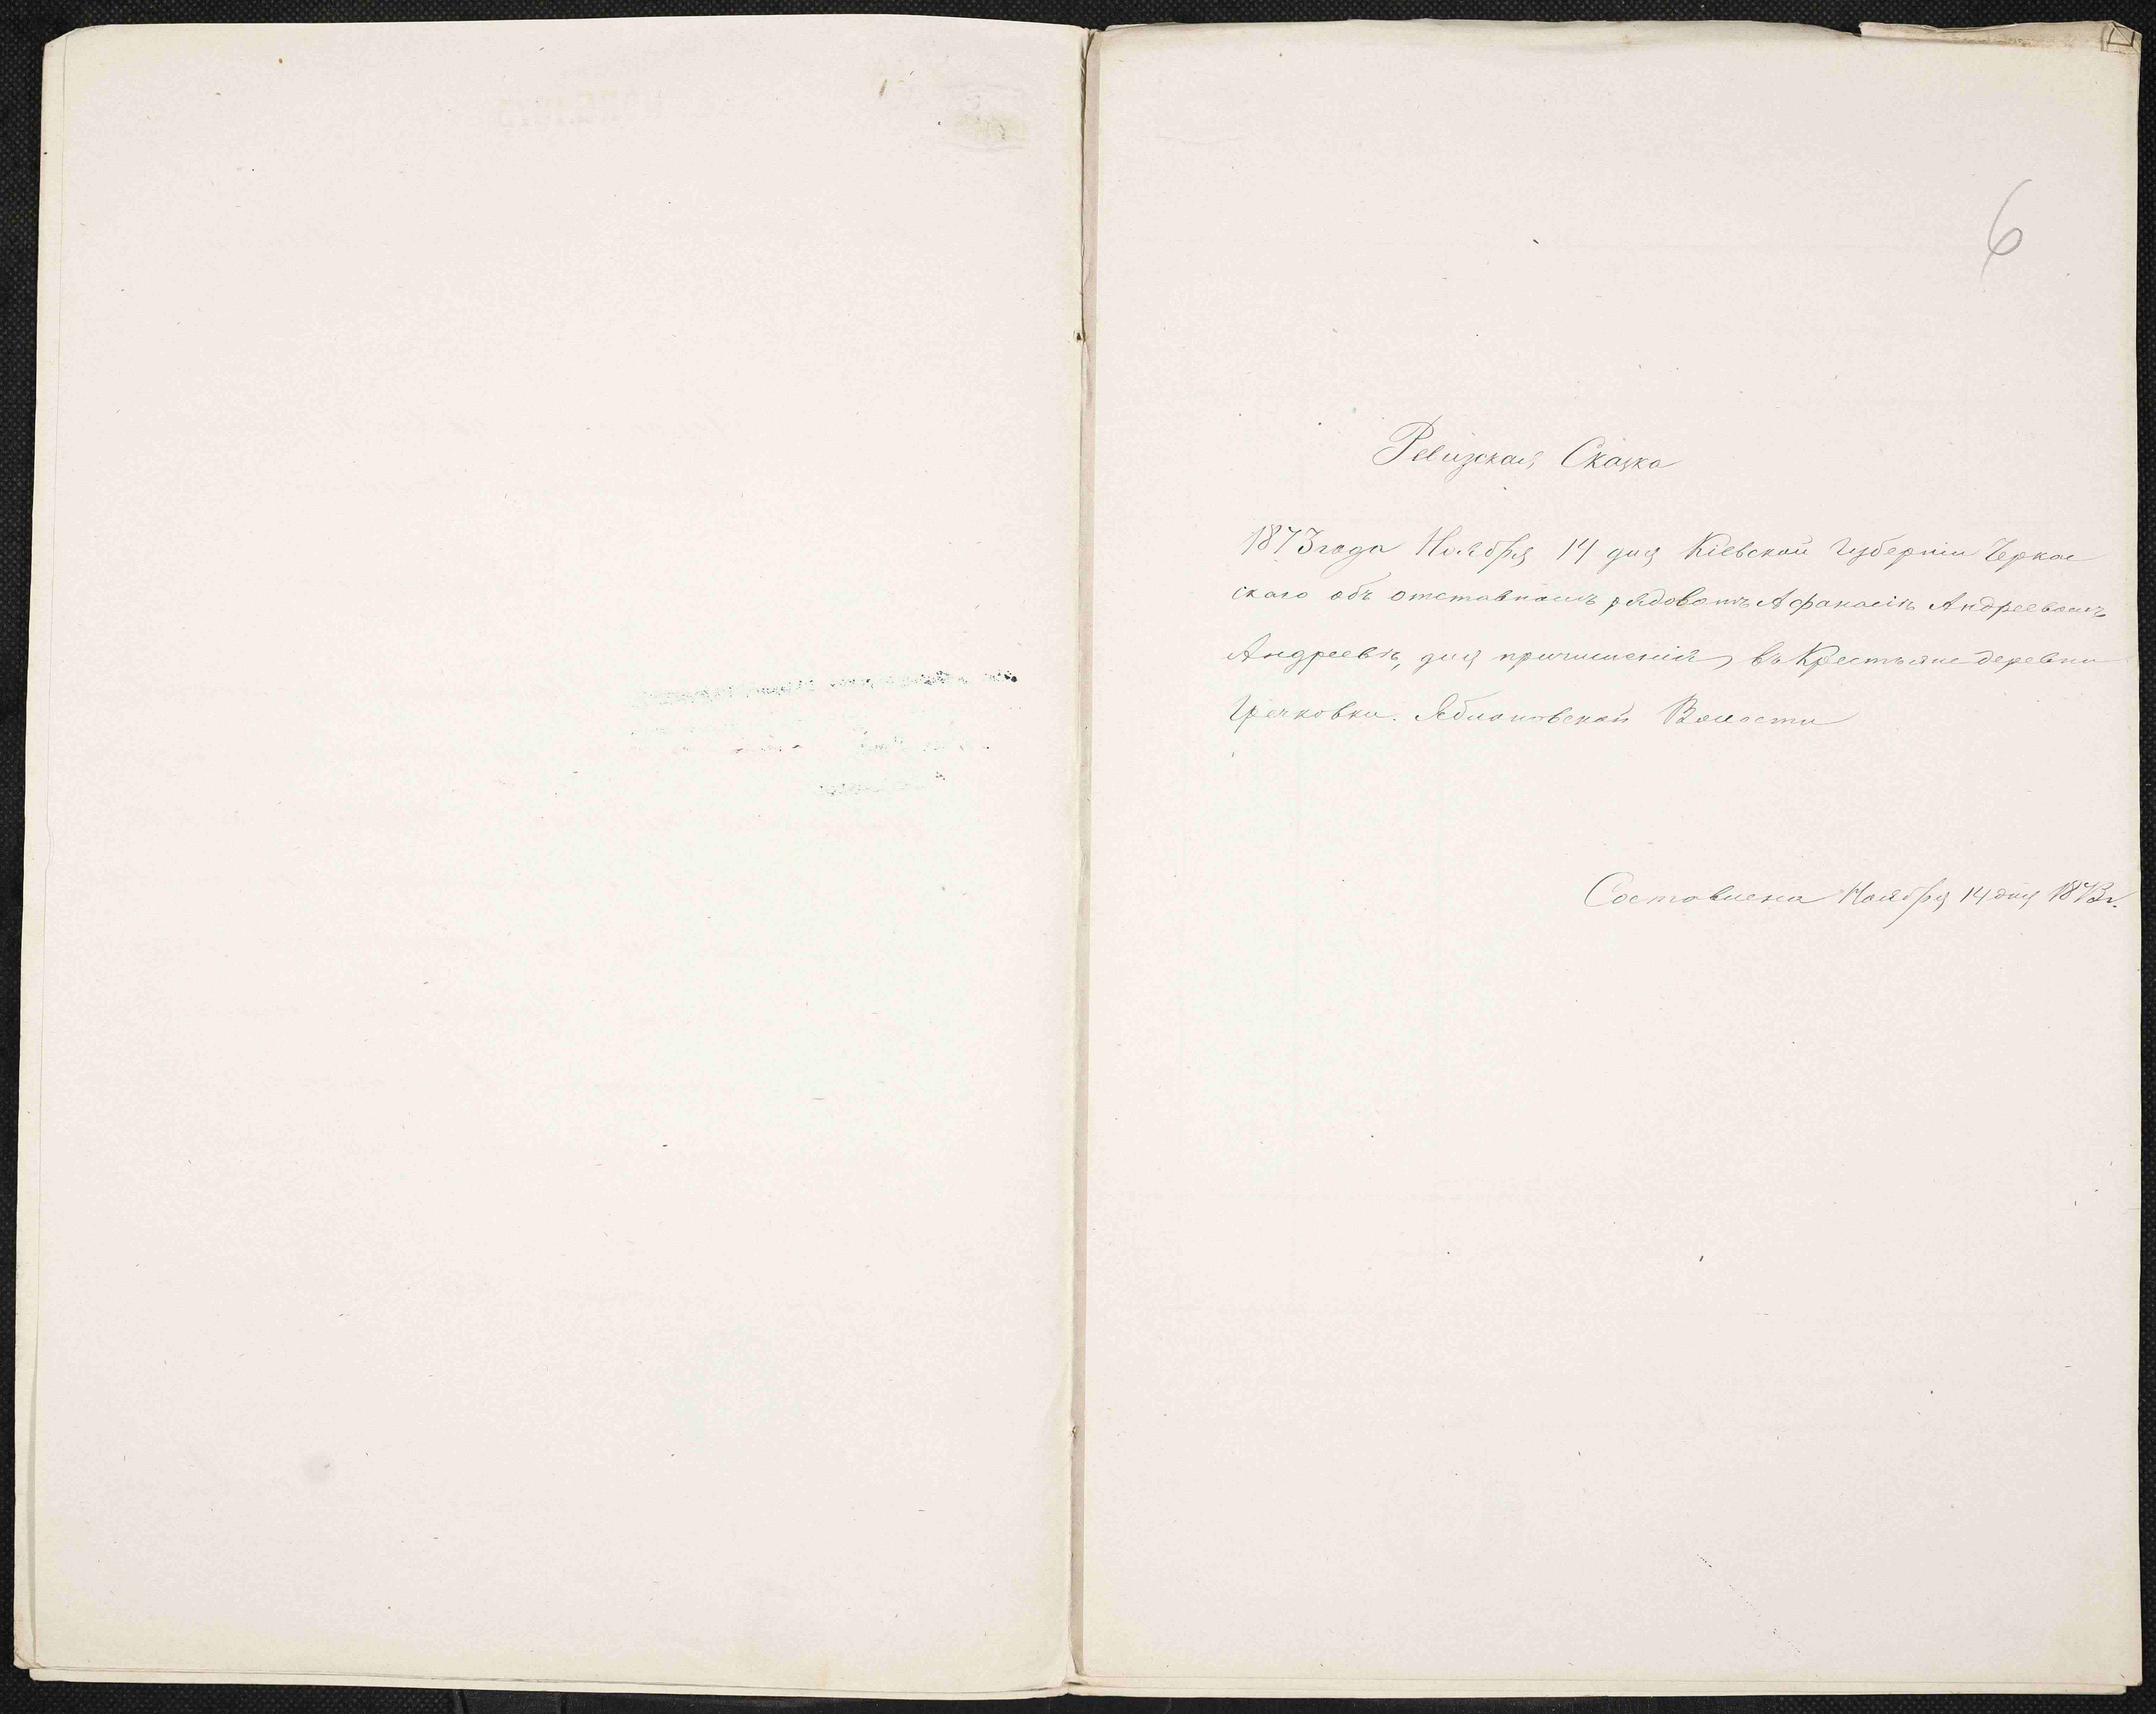 6
Ревизская Сказка
1873 года Ноября 14 дня Кіевской Губерніи Черкас
скаго объ отставномъ рядовомъ Афанасіѣ Андреевомъ
Андреевѣ, для причисленія въ Крестьяне деревни
Гречковки. Яблоновской Волости
Составлена Ноября 14 дня 1873 г.